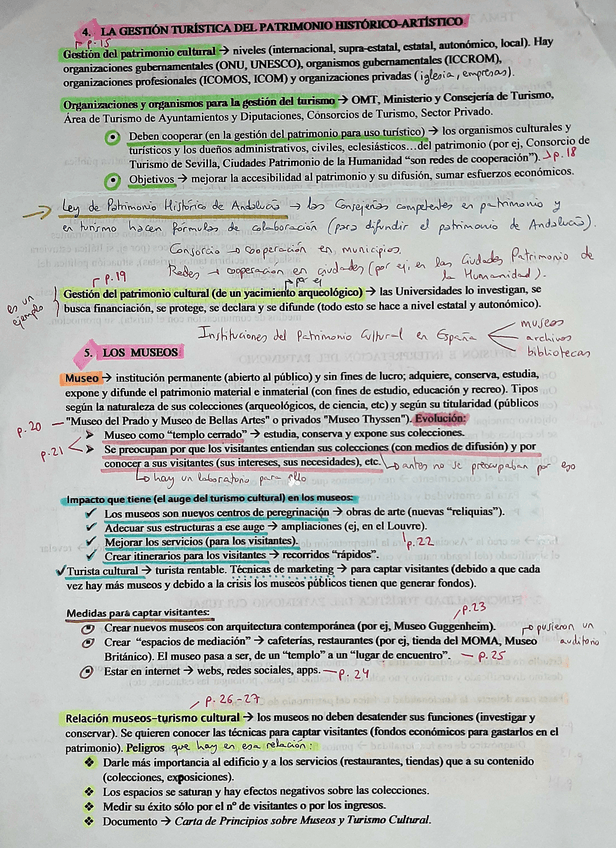 4. LA GESTIÓN TURÍSTICA DEL PATRIMONIO HISTÓRICO-ARTÍSTICO
p.15
Gestión del patrimonio cultural → niveles (internacional, supra-estatal, estatal, autonómico, local). Hay
organizaciones gubernamentales (ONU, UNESCO), organismos gubernamentales (ICCROM),
organizaciones profesionales (ICOMOS, ICOM) y organizaciones privadas (iglesia, empresas).
Organizaciones y organismos para la gestión del turismo → OMT, Ministerio y Consejería de Turismo,
Área de Turismo de Ayuntamientos y Diputaciones, Consorcios de Turismo, Sector Privado.
Deben cooperar (en la gestión del patrimonio para uso turístico) → los organismos culturales y
turísticos y los dueños administrativos, civiles, eclesiásticos...del patrimonio (por ej, Consorcio de
Turismo de Sevilla, Ciudades Patrimonio de la Humanidad “son redes de cooperación”). → p.18
Objetivos → mejorar la accesibilidad al patrimonio y su difusión, sumar esfuerzos económicos.
→ Ley de Patrimonio Histórico de Andalucía → las Consejerías competentes en patrimonio y
en turismo hacen fórmulas de colaboración (para difundir el patrimonio de Andalucía).
Consorcio → cooperación en municipios.
Redes → cooperación en ciudades (por ej, en las Ciudades Patrimonio de
la Humanidad).
p.19
por ej
es un ejemplo
Gestión del patrimonio cultural (de un yacimiento arqueológico) → las Universidades lo investigan, se
busca financiación, se protege, se declara y se difunde (todo esto se hace a nivel estatal y autonómico).
Instituciones del Patrimonio Cultural en España
museos
archivos
bibliotecas
5. LOS MUSEOS
Museo → institución permanente (abierto al público) y sin fines de lucro; adquiere, conserva, estudia,
expone y difunde el patrimonio material e inmaterial (con fines de estudio, educación y recreo). Tipos
según la naturaleza de sus colecciones (arqueológicos, de ciencia, etc) y según su titularidad (públicos
"Museo del Prado y Museo de Bellas Artes" o privados "Museo Thyssen"). Evolución:
p.20
➤ Museo como “templo cerrado” → estudia, conserva y expone sus colecciones.
p.21
➤ Se preocupan por que los visitantes entiendan sus colecciones (con medios de difusión) y por
conocer a sus visitantes (sus intereses, sus necesidades), etc. → antes no se preocupaban por eso
→ hay un laboratorio para ello
Impacto que tiene (el auge del turismo cultural) en los museos:
✓ Los museos son nuevos centros de peregrinación → obras de arte (nuevas “reliquias”).
✓ Adecuar sus estructuras a ese auge → ampliaciones (ej, en el Louvre).
✓ Mejorar los servicios (para los visitantes). p.22
✓ Crear itinerarios para los visitantes → recorridos “rápidos”.
✓ Turista cultural → turista rentable. Técnicas de marketing → para captar visitantes (debido a que cada
vez hay más museos y debido a la crisis los museos públicos tienen que generar fondos).
Medidas para captar visitantes:
p.23
Crear nuevos museos con arquitectura contemporánea (por ej, Museo Guggenheim).
→ pusieron un auditorio
Crear “espacios de mediación” → cafeterías, restaurantes (por ej, tienda del MOMA, Museo
Británico). El museo pasa a ser, de un “templo” a un “lugar de encuentro”. — p.25
Estar en internet → webs, redes sociales, apps. — p.24
p. 26-27
Relación museos-turismo cultural → los museos no deben desatender sus funciones (investigar y
conservar). Se quieren conocer las técnicas para captar visitantes (fondos económicos para gastarlos en el
patrimonio). Peligros que hay en esa relación:
❖ Darle más importancia al edificio y a los servicios (restaurantes, tiendas) que a su contenido
(colecciones, exposiciones).
❖ Los espacios se saturan y hay efectos negativos sobre las colecciones.
❖ Medir su éxito sólo por el nº de visitantes o por los ingresos.
❖ Documento → Carta de Principios sobre Museos y Turismo Cultural.